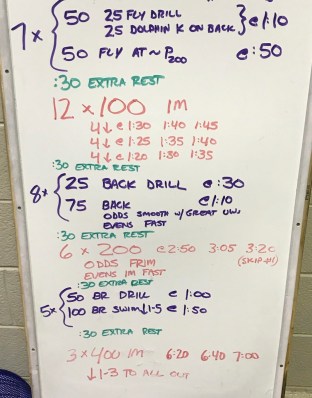 7 x { 50 25 FLY DRILL
25 DOLPHIN K ON BACK } @ 1:10
50 FLY AT ~ P200 @ :50
:30 EXTRA REST
12 x 100 IM
4↓ @ 1:30 1:40 1:45
4↓ @ 1:25 1:35 1:40
4↓ @ 1:20 1:30 1:35
:30 EXTRA REST
8x { 25 BACK DRILL @ :30
75 BACK @ 1:10
ODDS SMOOTH w/ GREAT UWs
EVENS FAST
:30 EXTRA REST
6 x 200 @ 2:50 3:05 3:20
ODDS FRIM (SKIP #1)
EVENS IM FAST
:30 EXTRA REST
5x { 50 BR DRILL @ 1:00
100 BR SWIM ↓1-5 @ 1:50
:30 EXTRA REST
3 x 400 IM 6:20 6:40 7:00
↓1-3 TO ALL OUT